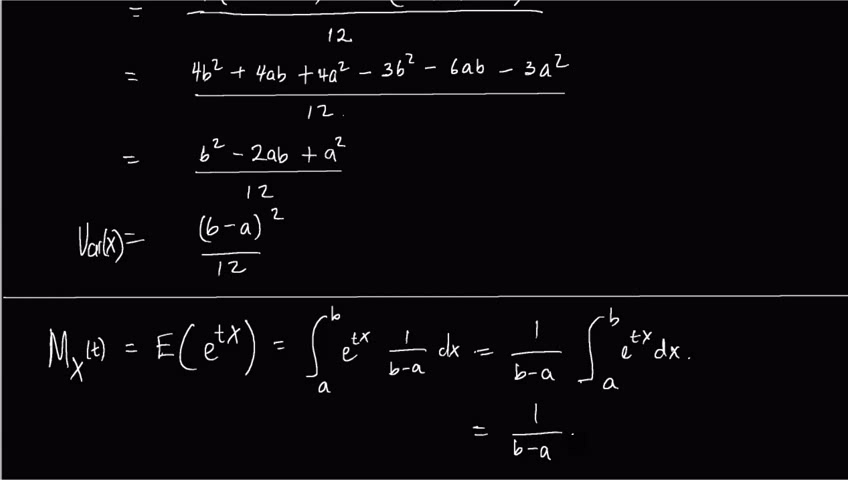 =
12
= 4b² + 4ab + 4a² - 3b² - 6ab - 3a²
12.
= b² - 2ab + a²
12
Var(x) = (b-a)²
12
M_X(t) = E(e^{tX}) = ∫_a^b e^{tx} 1/(b-a) dx = 1/(b-a) ∫_a^b e^{tx} dx.
= 1/(b-a) ·